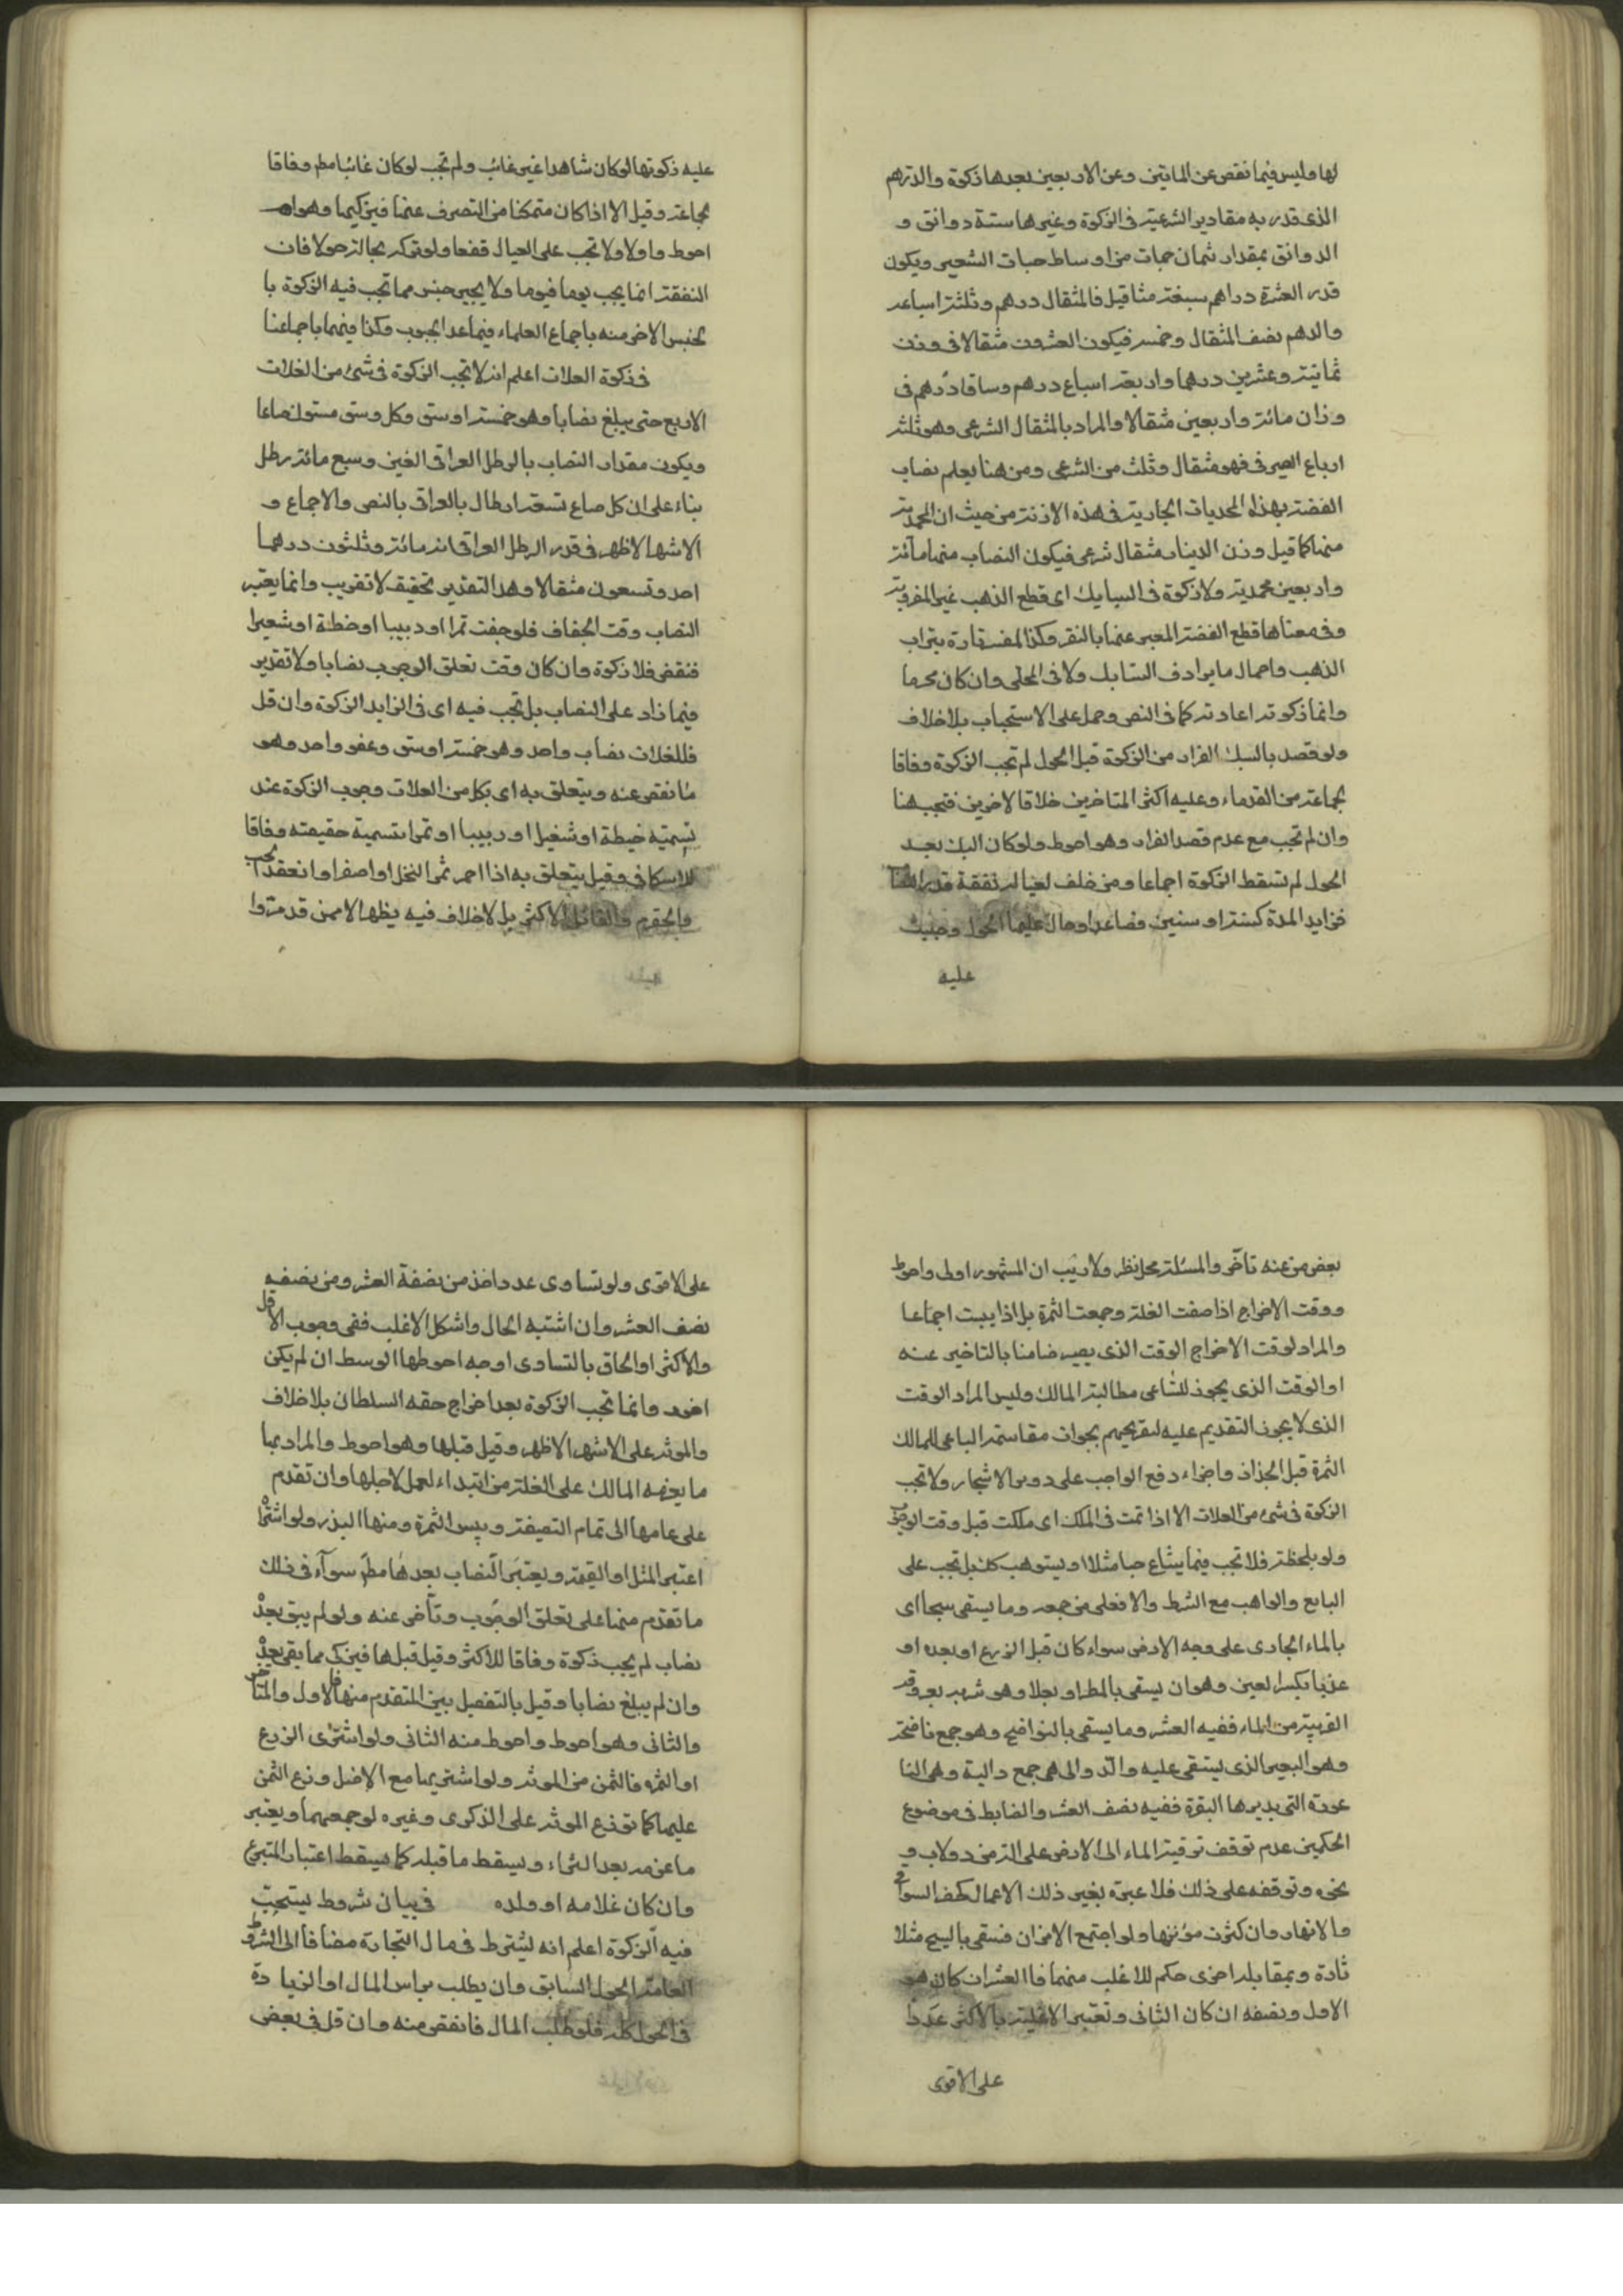 لها وليس فيما نقص عن الماتين وعن الاربعين بعدها زكوة والدرهم
الذي قدر به مقادير الشرعية في الزكوة وغيرها ستة دوانق و
الدوانق بمقدار ثمان حبات من اوساط حبات الشعير ويكون
قدر العشرة دراهم سبعة مثاقيل فالمثقال درهم وثلثة اسباعه
والدهم نصف المثقال وخمسه فيكون العشرون مثقالا في وزن
ثمانية وعشرين درهما واربعة اسباع درهم وساقا درهم في
وزان مائة واربعين مثقالا والمراد بالمثقال الشرعي وهو ثلثة
ارباع الصيرفي فهو مثقال وثلث من الشرعي ومن هنا يعلم نصاب
الفضة بهذا المحديات الجارية في هذه الازنة من حيث ان المحمدية
منها كما قيل وزن الدينار مثقال شرعي فيكون النصاب منها مائة
واربعين محمدية ولا زكوة في السبايك اي قطع الذهب غير المضروبة
وفي معناها قطع الفضة المعبر عنها بالنقر وكذا المفسرة بتراب
الذهب واحمال ما يرادف السبايك ولا في المحلى وان كان محرما
وانما زكوته اعادته كما في النص وحمل على الاستحباب بلا خلاف
ولو قصد بالسبك الفرار من الزكوة قبل الحول لم تجب الزكوة وفاقا
لجماعة من القدماء وعليه اكثر المتاخرين خلافا لاخرين فتجب هنا
وان لم تجب مع عدم قصد الفرار وهو احوط ولو كان السبك بعد
الحول لم تسقط الزكوة اجماعا ومن خلف لعياله نفقة قدر النصا
فزايد المدة كسنة او سنين فصاعدا وحال عليها الحول وجبت
عليه
عليه زكوتها لو كان شاهدا غير غائب ولم تجب لو كان غائبا مطم وفاقا
لجماعة وقيل الا اذا كان متمكنا من التصرف عنها فيزكيها وهو
احوط واولا ولا تجب على العيال قطعا ولو تركه بحاله حولا فان
النفقة انما يجب يوما فيوما ولا يجبر جنس مما تجب فيه الزكوة با
لجنس الاخر منه باجماع العلماء فيما عدا الحبوب وكذا فيهما باجماعنا
في زكوة الغلات اعلم انه لا تجب الزكوة في شئ من الغلات
الاربع حتى يبلغ نصابا وهو خمسة اوسق وكل وسق ستون صاعا
ويكون مقدار النصاب بالرطل العراقي الفين وسبع مائة رطل
بناء على ان كل صاع تسعة ارطال بالعراقي بالنص والاجماع و
الاشهر الاظهر في قدر الرطل العراقي انه مائة وثلثون درهما
احد وتسعون مثقالا وهذا التقدير تحقيق لا تقريب وانما يعتبر
النصاب وقت الجفاف فلو جفت تمرا او زبيبا او حنطة او شعيرا
فنقص فلا زكوة وان كان وقت تعلق الوجوب نصابا ولا تقدير
فيما زاد على النصاب بل تجب فيه اي في الزايد الزكوة وان قل
فللغلات نصاب واحد وهو خمسة اوسق وعفو واحد وهو
ما نقص عنه ويتعلق به اي بكل من الغلات وجوب الزكوة عند
تسميته حنطة او شعيرا او زبيبا او تمرا تسمية حقيقته وفاقا
للاسكافي وقيل يتعلق به اذا احمر ثمر النخل او اصفر او انعقد الحب
والحقرم والقائل الاكثر بل لا خلاف فيه يظهر الا ممن قدمنوا
بعض من عنه تاخر والمسئلة محل نظر ولا ريب ان المشهور اولى واحوط
ووقت الاخراج اذا صفت الغلة وجمعت الثمرة بل اذا يبست اجماعا
والمراد لوقت الاخراج الوقت الذي يصير ضامنا بالتاخير عنه
او الوقت الذي يجوز للساعي مطالبة المالك وليس المراد الوقت
الذي لا يجوز التقديم عليه لتصريحهم بجواز مقاسمة الباعي للمالك
الثمرة قبل الجذاذ واجزاء دفع الواجب على دوس الاشجار ولا تجب
الزكوة في شئ من الغلات الا اذا تمت في الملك اي ملكت قبل وقت الوجوب
ولو بلحظة فلا تجب فيما يبتاع حبا مثلا او يستوهب كك بل تجب على
البايع والواهب مع الشرط والا فعلى من جمعه وما يسقى سيحا اي
بالماء الجاري على وجه الارض سواء كان قبل الزرع او بعده او
عذبا بكسر العين وهو ان يسقى بالمطر او بعلا وهو شربه بعروقه
القريبة من الماء ففيه العشر وما يسقى بالنواضح وهو جمع ناضحة
وهو البعير الذي يستقى عليه والدوالي هي جمع دالية وهي النا
عورة التي يديرها البقرة ففيه نصف العشر والضابط في موضوع
الحكمين عدم توقف ترقية الماء الى الارض على الة من دولاب و
نحوه وتوقفه على ذلك فلا عبرة بغير ذلك الاعمال كحفر السواقي
والانهار وان كثرت مؤنتها ولو اجتمع الامران فسقي بالسيح مثلا
تارة وبمقابله اخرى حكم للاغلب منهما فالعشر ان كان هو
الاول ونصفه ان كان الثاني وتعتبر الاغلبية بالاكثر عددا
على الاقوى
على الاقوى ولو تساوى عددا اخذ من نصفة العشر ومن نصفه
نصف العشر وان اشتبه الحال واشكل الاغلب ففي وجوب الاقل
والاكثر او الحاق بالتساوي اوجه احوطها الوسط ان لم يكن
اخوه وانما تجب الزكوة بعد اخراج حقه السلطان بلا خلاف
والمونة على الاشهر الاظهر وقيل قبلها وهو احوط والمراد بها
ما يغرمه المالك على الغلة من ابتداء العمل لاجلها وان تقدم
على عامها الى تمام التصفية ويبس الثمرة ومنها البذر ولو اشترا
اعتبر المثل او القيمة ويعتبر النصاب بعدها مطم سواء في ذلك
ما تقدم منها على تعلق الوجوب وتأخر عنه ولو لم يبق بعد
نصاب لم يجب زكوة وفاقا للاكثر وقيل قبلها فيزكى مما بقي بعد
وان لم يبلغ نصابا وقيل بالتفصيل بين المتقدم منها فالاول والمتاخر
والثاني وهو احوط واحوط منه الثاني ولو اشترى الزرع
او الثمرة فالثمن من المونة ولو اشتريهما مع الاصل وزع الثمن
عليهما كما توزع المونة على الزكوي وغيره لو جمعهما ويعتبر
ما غرمه بعد الشراء ويسقط ما قبله كما يسقط اعتبار المتبرع
وان كان غلامه او ولده في بيان شروط يستحب
فيه الزكوة اعلم انه يشترط في مال التجارة مضافا الى الشروط
العامة الحول السابق وان يطلب براس المال او الزيادة
في الحول كله فلو طلب المال فانقص منه وان قل في بعض